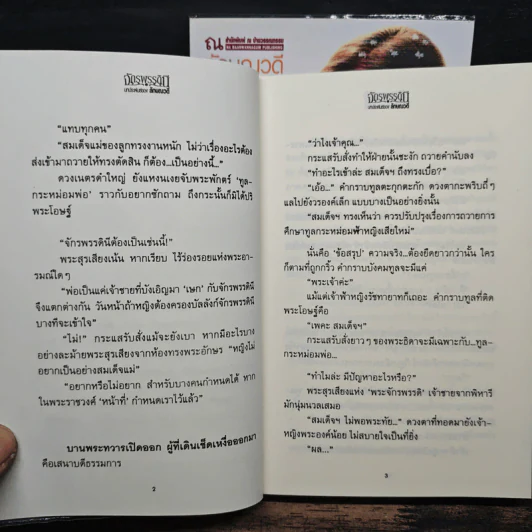 ณ สำนักพิมพ์ ณ บ้านวรรณกรรม
NA BAANWANNAGUM PUBLISHING
จักรพรรดินี
บทประพันธ์ของ ลักษณวดี
"แทบทุกคน"
"สมเด็จแม่ของลูกทรงงานหนัก ไม่ว่าเรื่องอะไรต้อง
ส่งเข้ามาถวายให้ทรงตัดสิน ก็ต้อง...เป็นอย่างนี้..."
ดวงเนตรดำใหญ่ ยังแหงนเงยจับพระพักตร์ 'ทูล-
กระหม่อมพ่อ' ราวกับอยากซักถาม ถึงกระนั้นก็มิได้ปริ
พระโอษฐ์
"จักรพรรดินีต้องเป็นเช่นนี้!"
พระสุรเสียงเน้น หากเรียบ ไร้ร่องรอยแห่งพระอา-
รมณ์ใดๆ
"พ่อเป็นแค่เจ้าชายที่บังเอิญมา 'เษก' กับจักรพรรดินี
จึงแตกต่างกัน วันหน้าถ้าหญิงต้องครองบัลลังก์จักรพรรดินี
บางทีจะเข้าใจ"
"ไม่!" กระแสรับสั่งแม้จะยังเบา หากมีอะไรบาง
อย่างละม้ายพระสุรเสียงจากห้องทรงพระอักษร "หญิงไม่
อยากเป็นอย่างสมเด็จแม่"
"อยากหรือไม่อยาก สำหรับบางคนกำหนดได้ หาก
ในพระราชวงศ์ 'หน้าที่' กำหนดเราไว้แล้ว"
บานพระทวารเปิดออก ผู้ที่เดินเช็ดเหงื่อออกมา
คือเสนาบดีธรรมการ
2
จักรพรรดินี
บทประพันธ์ของ ลักษณวดี
"ว่าไงเจ้าคุณ..."
กระแสรับสั่งทำให้ฝ่ายนั้นชะงัก ถวายคำนับลง
"ทำอะไรเข้าล่ะ สมเด็จฯ ถึงทรงเบื่อ?"
"เอ้อ..." คำกราบทูลตะกุกตะกัก ดวงตากะพริบถี่ๆ
แลไปยังวรองค์เล็ก แบบบางเป็นอย่างยิ่งนั้น
"สมเด็จฯ ทรงเห็นว่า ควรปรับปรุงเรื่องการถวายการ
ศึกษาทูลกระหม่อมฟ้าหญิงเสียใหม่"
นั่นคือ 'ข้อสรุป' ความจริง...ต้องยืดยาวกว่านั้น ใคร
ก็ตามที่ถูกกริ้ว คำกราบบังคมทูลจะมีแค่
"พระเจ้าค่ะ"
แม้แต่เจ้าฟ้าหญิงรัชทายาทก็เถอะ คำกราบทูลที่ติด
พระโอษฐ์คือ
"เพคะ สมเด็จฯ"
กระแสรับสั่งยาวๆ ของพระธิดาจะมีเฉพาะกับ...ทูล-
กระหม่อมพ่อ...
"ทำไมล่ะ มีปัญหาอะไรหรือ?"
พระสุรเสียงแห่ง 'พระจักรพรรดิ' เจ้าชายจากพิหารี
มักนุ่มนวลเสมอ
"สมเด็จฯ ไม่พอพระทัย..." ดวงตาที่ทอดมายังเจ้า-
หญิงพระองค์น้อย ไม่สบายใจเป็นที่ยิ่ง
"ผล..."
3